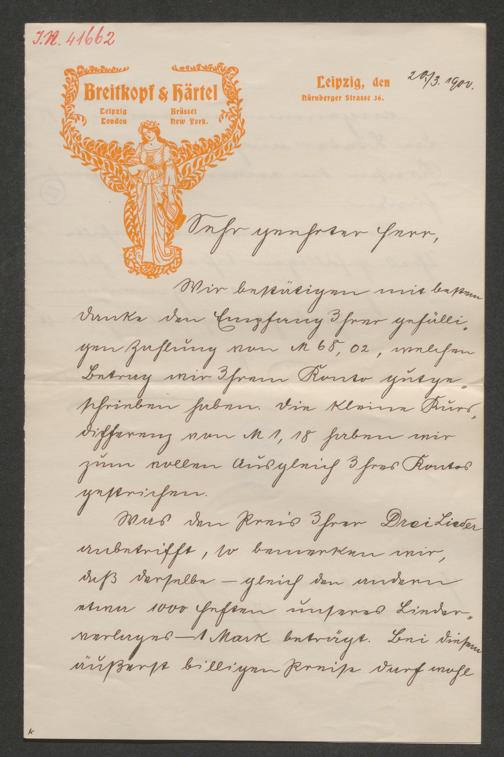 I.N. 41662
Breitkopf & Härtel
Leipzig Brüssel
London New York.
Leipzig, den 20./3. 1900.
Nürnberger Strasse 36.
Sehr geehrter Herr,
Wir bestätigen mit bestem
Danke den Empfang Ihrer gefälli-
gen Zahlung von M 65,02, welchen
Betrag wir Ihrem Konto gutge-
schrieben haben. Die kleine Kurs-
differenz von M 1,18 haben wir
zum vollen Ausgleich Ihres Kontos
gestrichen.
Was den Preis Ihrer Drei Lieder
anbetrifft, so bemerken wir,
daß derselbe – gleich den andern
etwa 1000 Heften unseres Lieder-
verlages – 1 Mark beträgt. Bei diesem
äußerst billigen Preise darf wohl